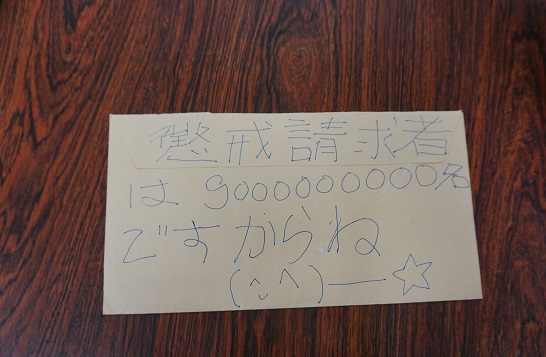 懲戒請求者
は 9000000000%
ですからね
(^⌣^)―☆